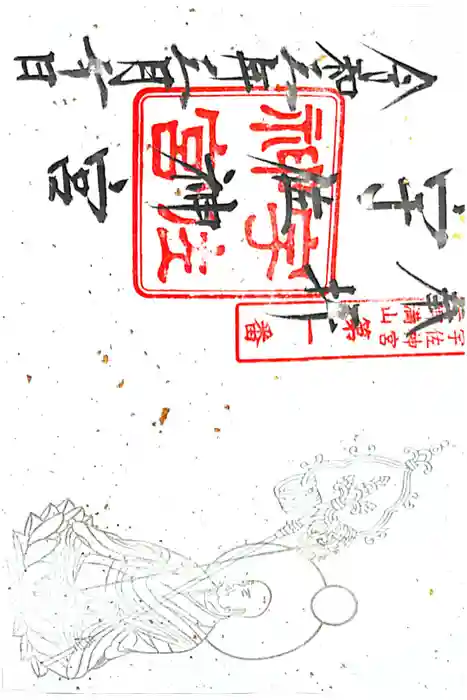 奉拝
宇佐神宮
令和年月十日
宇佐神宮
六郷満山
宇佐神宮
第一番